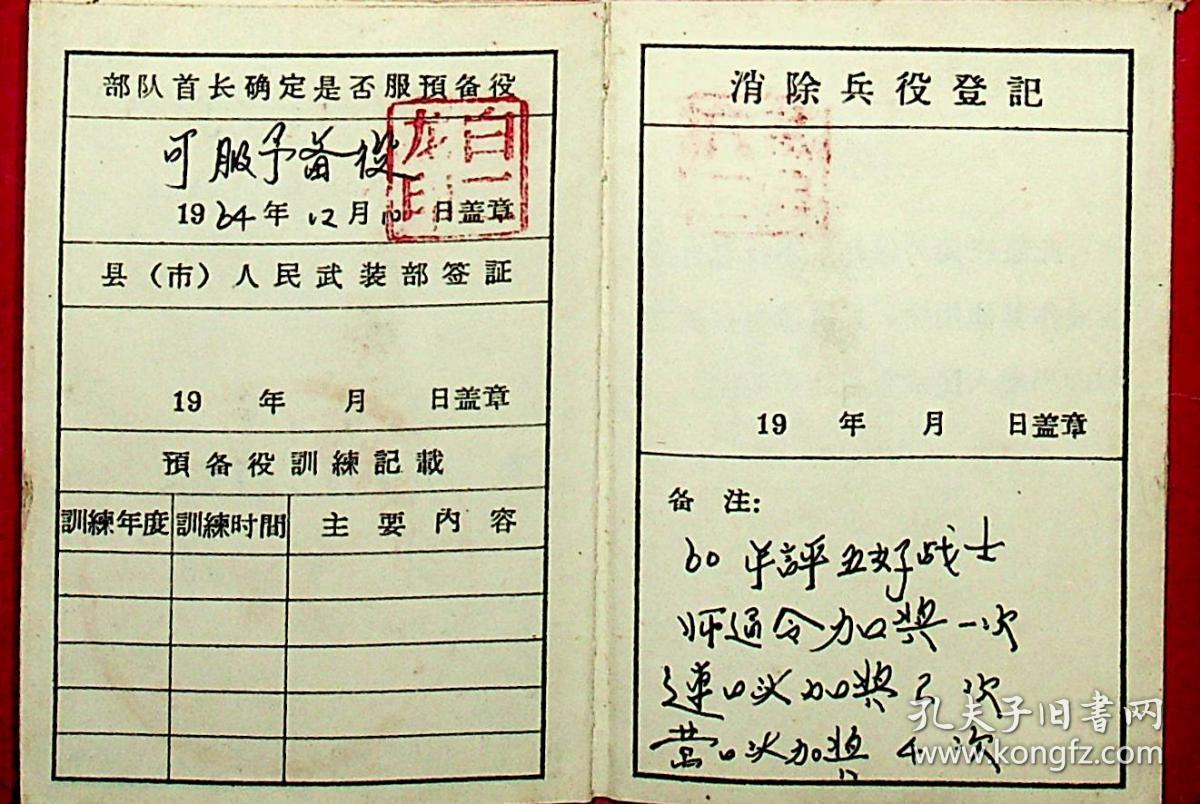 部队首长确定是否服預备役
可服予备役
1964年12月10日盖章
白一龙印
县（市）人民武装部签証
19 年 月 日盖章
預备役訓練記載
訓練年度 訓練时間 主要內容
消除兵役登記
19 年 月 日盖章
备注:
60年評五好战士
师通令加奖一次
連口头加奖3次
营口头加奖4次
孔夫子旧书网
www.kongfz.com